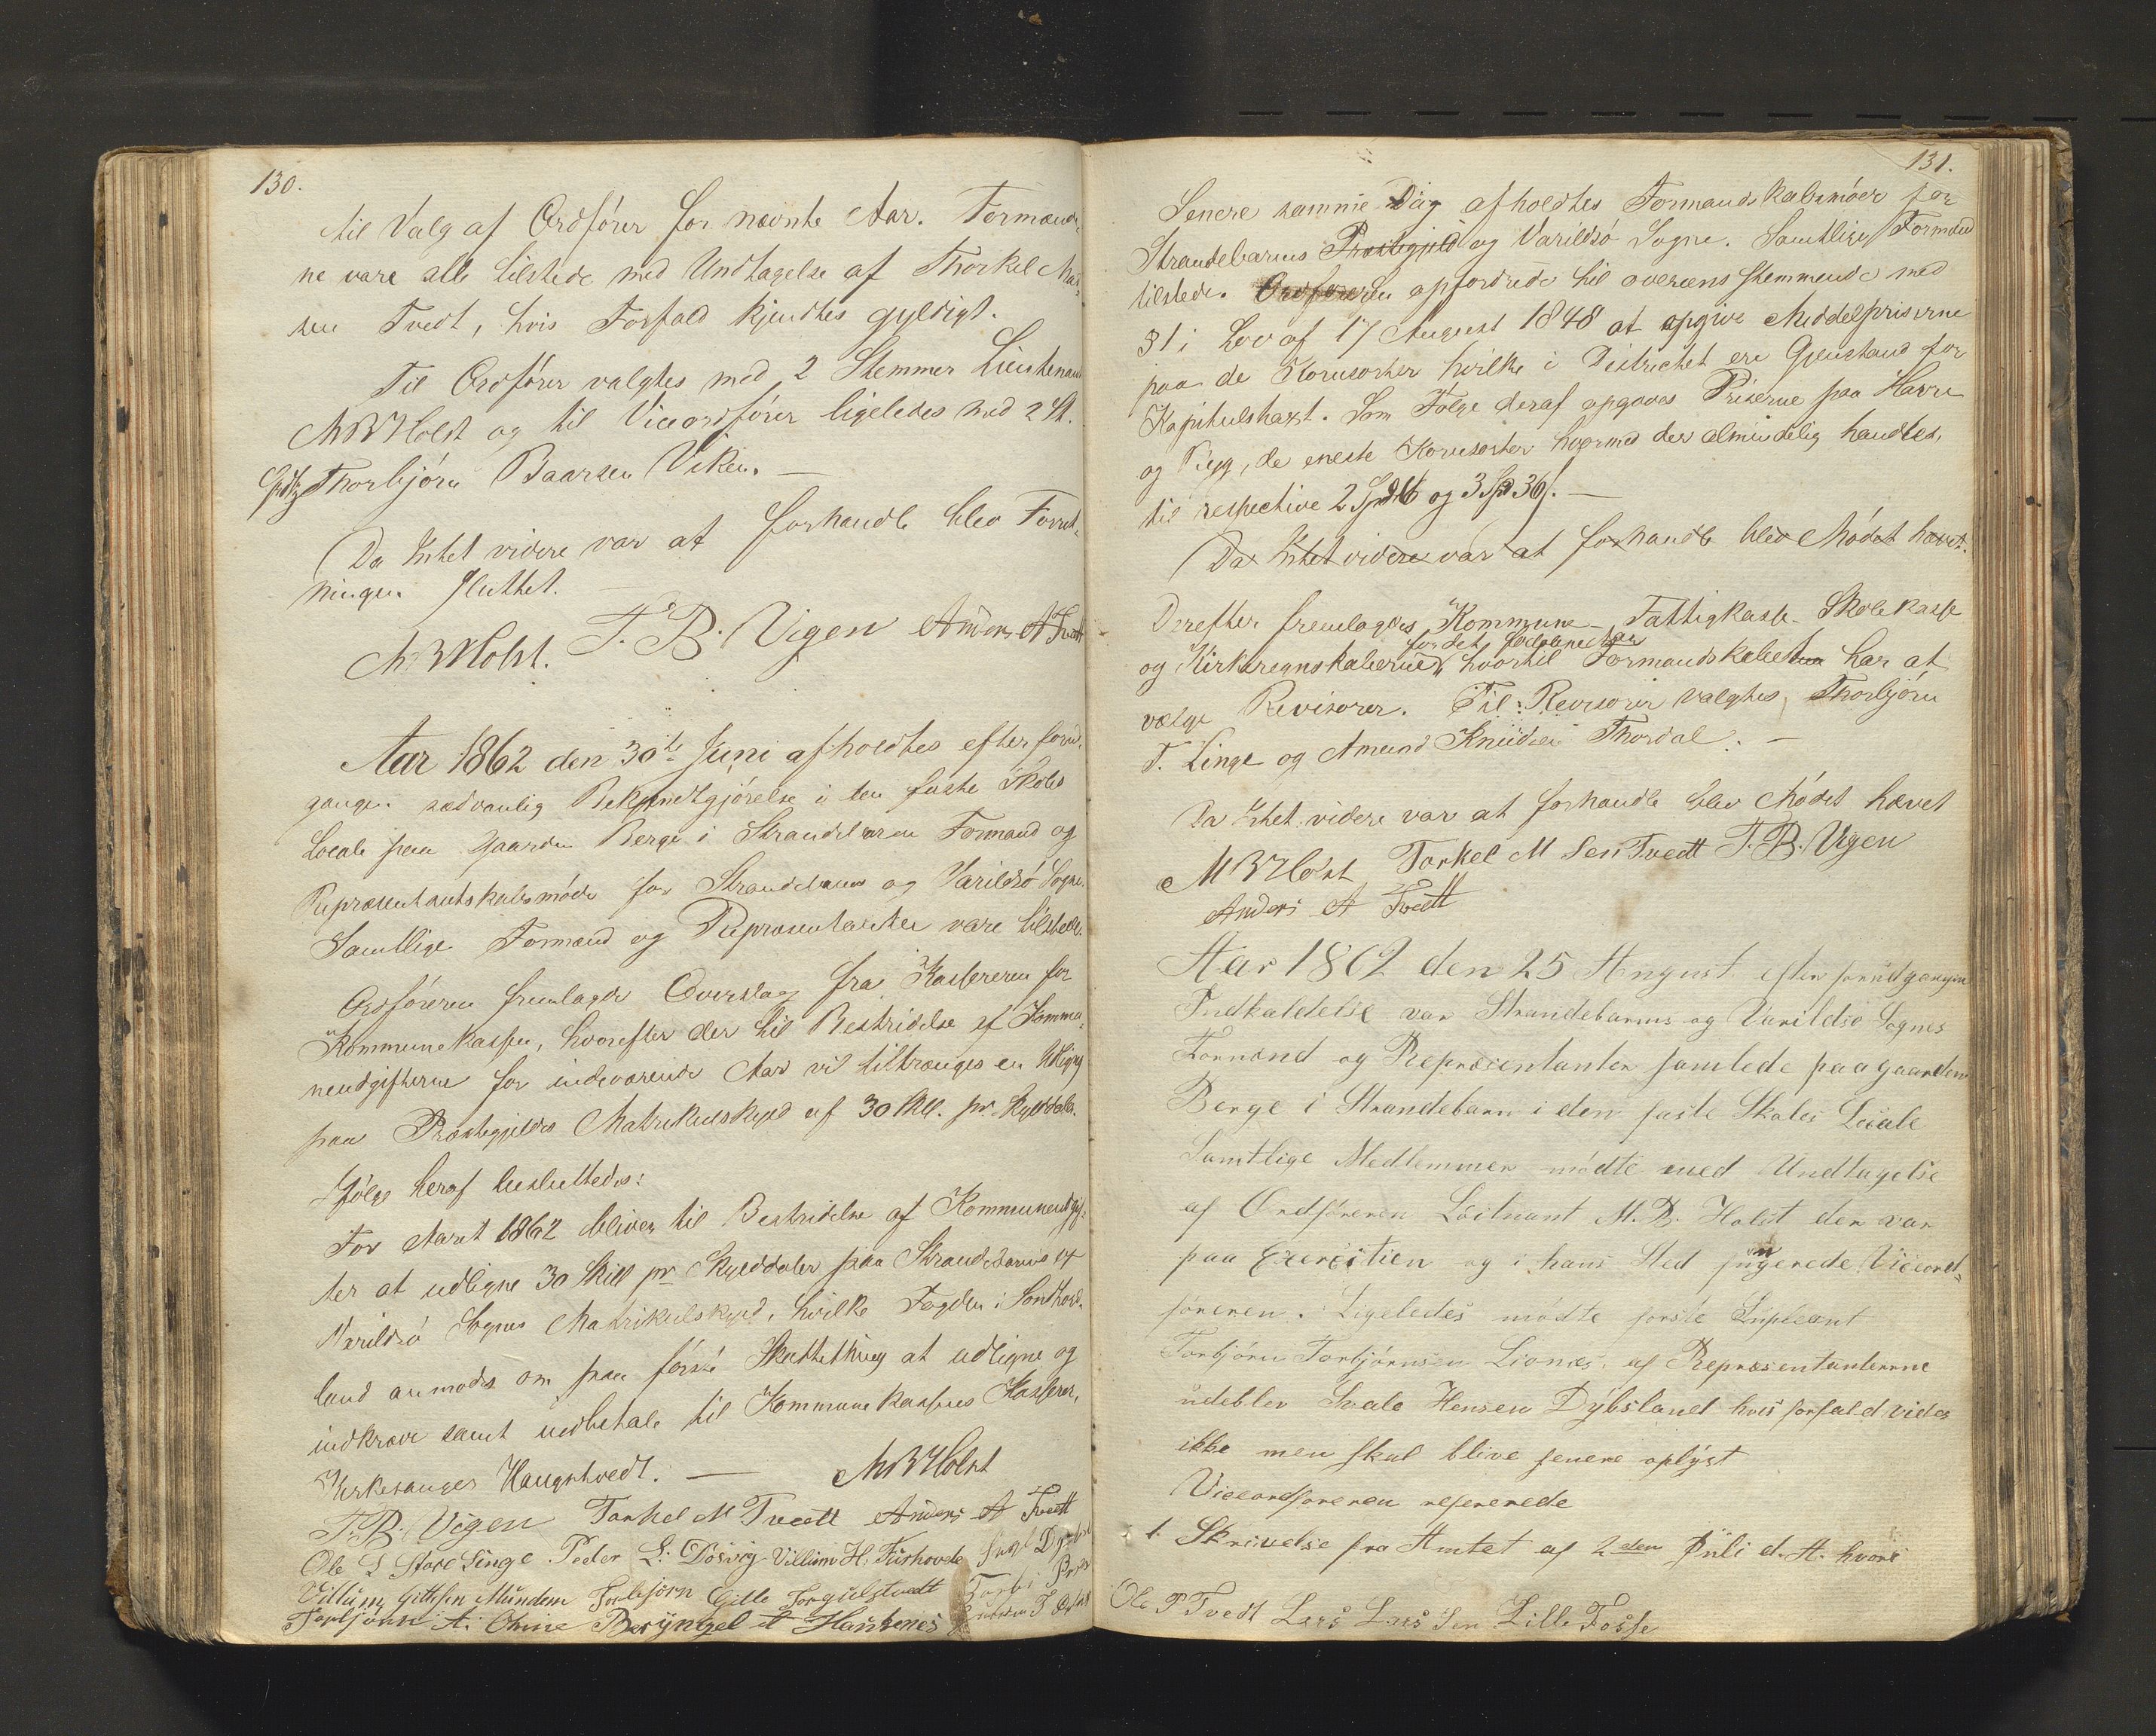 130.
til Valg af Ordfører for nævnte Aar. Formænde-
ne vare alle tilstede med Undtagelse af Thorkel Mad-
sen Tvedt, hvis Forfald kjendtes gyldigt.
Til Ordfører valgtes med 2 Stemmer Lieutenant
M B Holst og til Viceordfører ligeledes med 2 St.
Thorbjørn Baarsen Viken. —
Da Intet videre var at forhandle blev Forret-
ningen sluttet. —
M B Holst. T. B. Vigen Anders A Tvedt
Aar 1862 den 30te Juni afholdtes efter forud-
gangen sædvanlig Bekjendtgjørelse i den faste Skoles
Locale paa Gaarden Berge i Strandebarm Formand og
Repræsentantskabsmøde for Strandebarms og Varildsø Sogne.
Samtlige Formænd og Repræsentanter vare tilstede.
Ordføreren fremlagde Overslag fra Kassereren for
Kommunekassen, hvorefter der til Bestridelse af Kommu-
neudgifterne for indeværende Aar vil tiltrænges en Udligng
paa Præstegjeldets Matrikulskyld af 30 Skll. pr. Skylddaler.
Ifølge heraf besluttedes:
For Aaret 1862 bliver til Bestridelse af Kommuneudgif-
ter at udligne 30 Skill pr Skylddaler paa Strandebarms og
Varildsø Sognes Matrikulskyld, hvilke Fogden i Søndhord-
land anmodes om paa første Skattething at udligne og
indkræve samt indbetale til Kommunekassens Kasserer,
Kirkesanger Haugstvedt. — M B Holst
T. B. Vigen Torkel M Tvedt Anders A Tvedt
Ole L Store Linge Peder L: Dösvig Villum H. Furhovde
Villum Gittsen Mundem Torbjørn Gitle Torgulstvedt
Torbjørn A: Ohine Beryngel A Hansenes
131.
Senere samme Dag afholdtes Formandskabsmøde for
Strandebarms Præstegjeld og Varildsø Sogne. Samtlige Formænd
tilstede. Ordføreren opfordrede til overeensstemmende med
§ 1 i Lov af 17 August 1848 at opgive Middelpriserne
paa de Kornsorter hvilke i Districtet ere Gjenstand for
Kapitulstaxt. Som Følge deraf opgaves Priserne paa Havre
og Bygg, de eneste Kornsorter hvormed der almindelig handles,
til respective 2 Spd og 3 Spd 36 s. —
Da Intet videre var at forhandle blev Mødet hævet.
Derefter fremlagdes Kommune- Fattigkasse- Skolekasse
for det forløbne Aar
og Kirkeregnskaberne hvortil Formandskabet har at
vælge Revisorer. Til Revisorer valgtes, Thorbjørn
T. Linge og Amund Knudsen Thordal. —
Da Intet videre var at forhandle blev Mødet hævet
M B Holst Torkel M Sen Tvedt T. B. Vigen
Anders A Tvedt
Aar 1862 den 25 August efter forudgangen
Indkaldelse var Strandebarms og Varildsø Sognes
Formænd og Repræsentanter samlede paa gaarden
Berge i Strandebarm i den faste Skoles Locale
Samtlige Medlemmer mødte med Undtagelse
af Ordføreren Löitnant M. B. Holst der var
paa Exercitien og i hans Sted fungerede Viceord-
føreren. Ligeledes mødte første Supleant
Torbjørn Torbjørnsen Lionæs. af Repræsentanterne
udeblev Svale Hensen Dybsland hvis forfald vides
ikke men skal blive senere oplyst
Viceordføreren refererede
1. Skrivelse fra Amtet af 2den Juli d. A. hvori
Ole P Tvedt Lars Lars Sen Lille Fosse